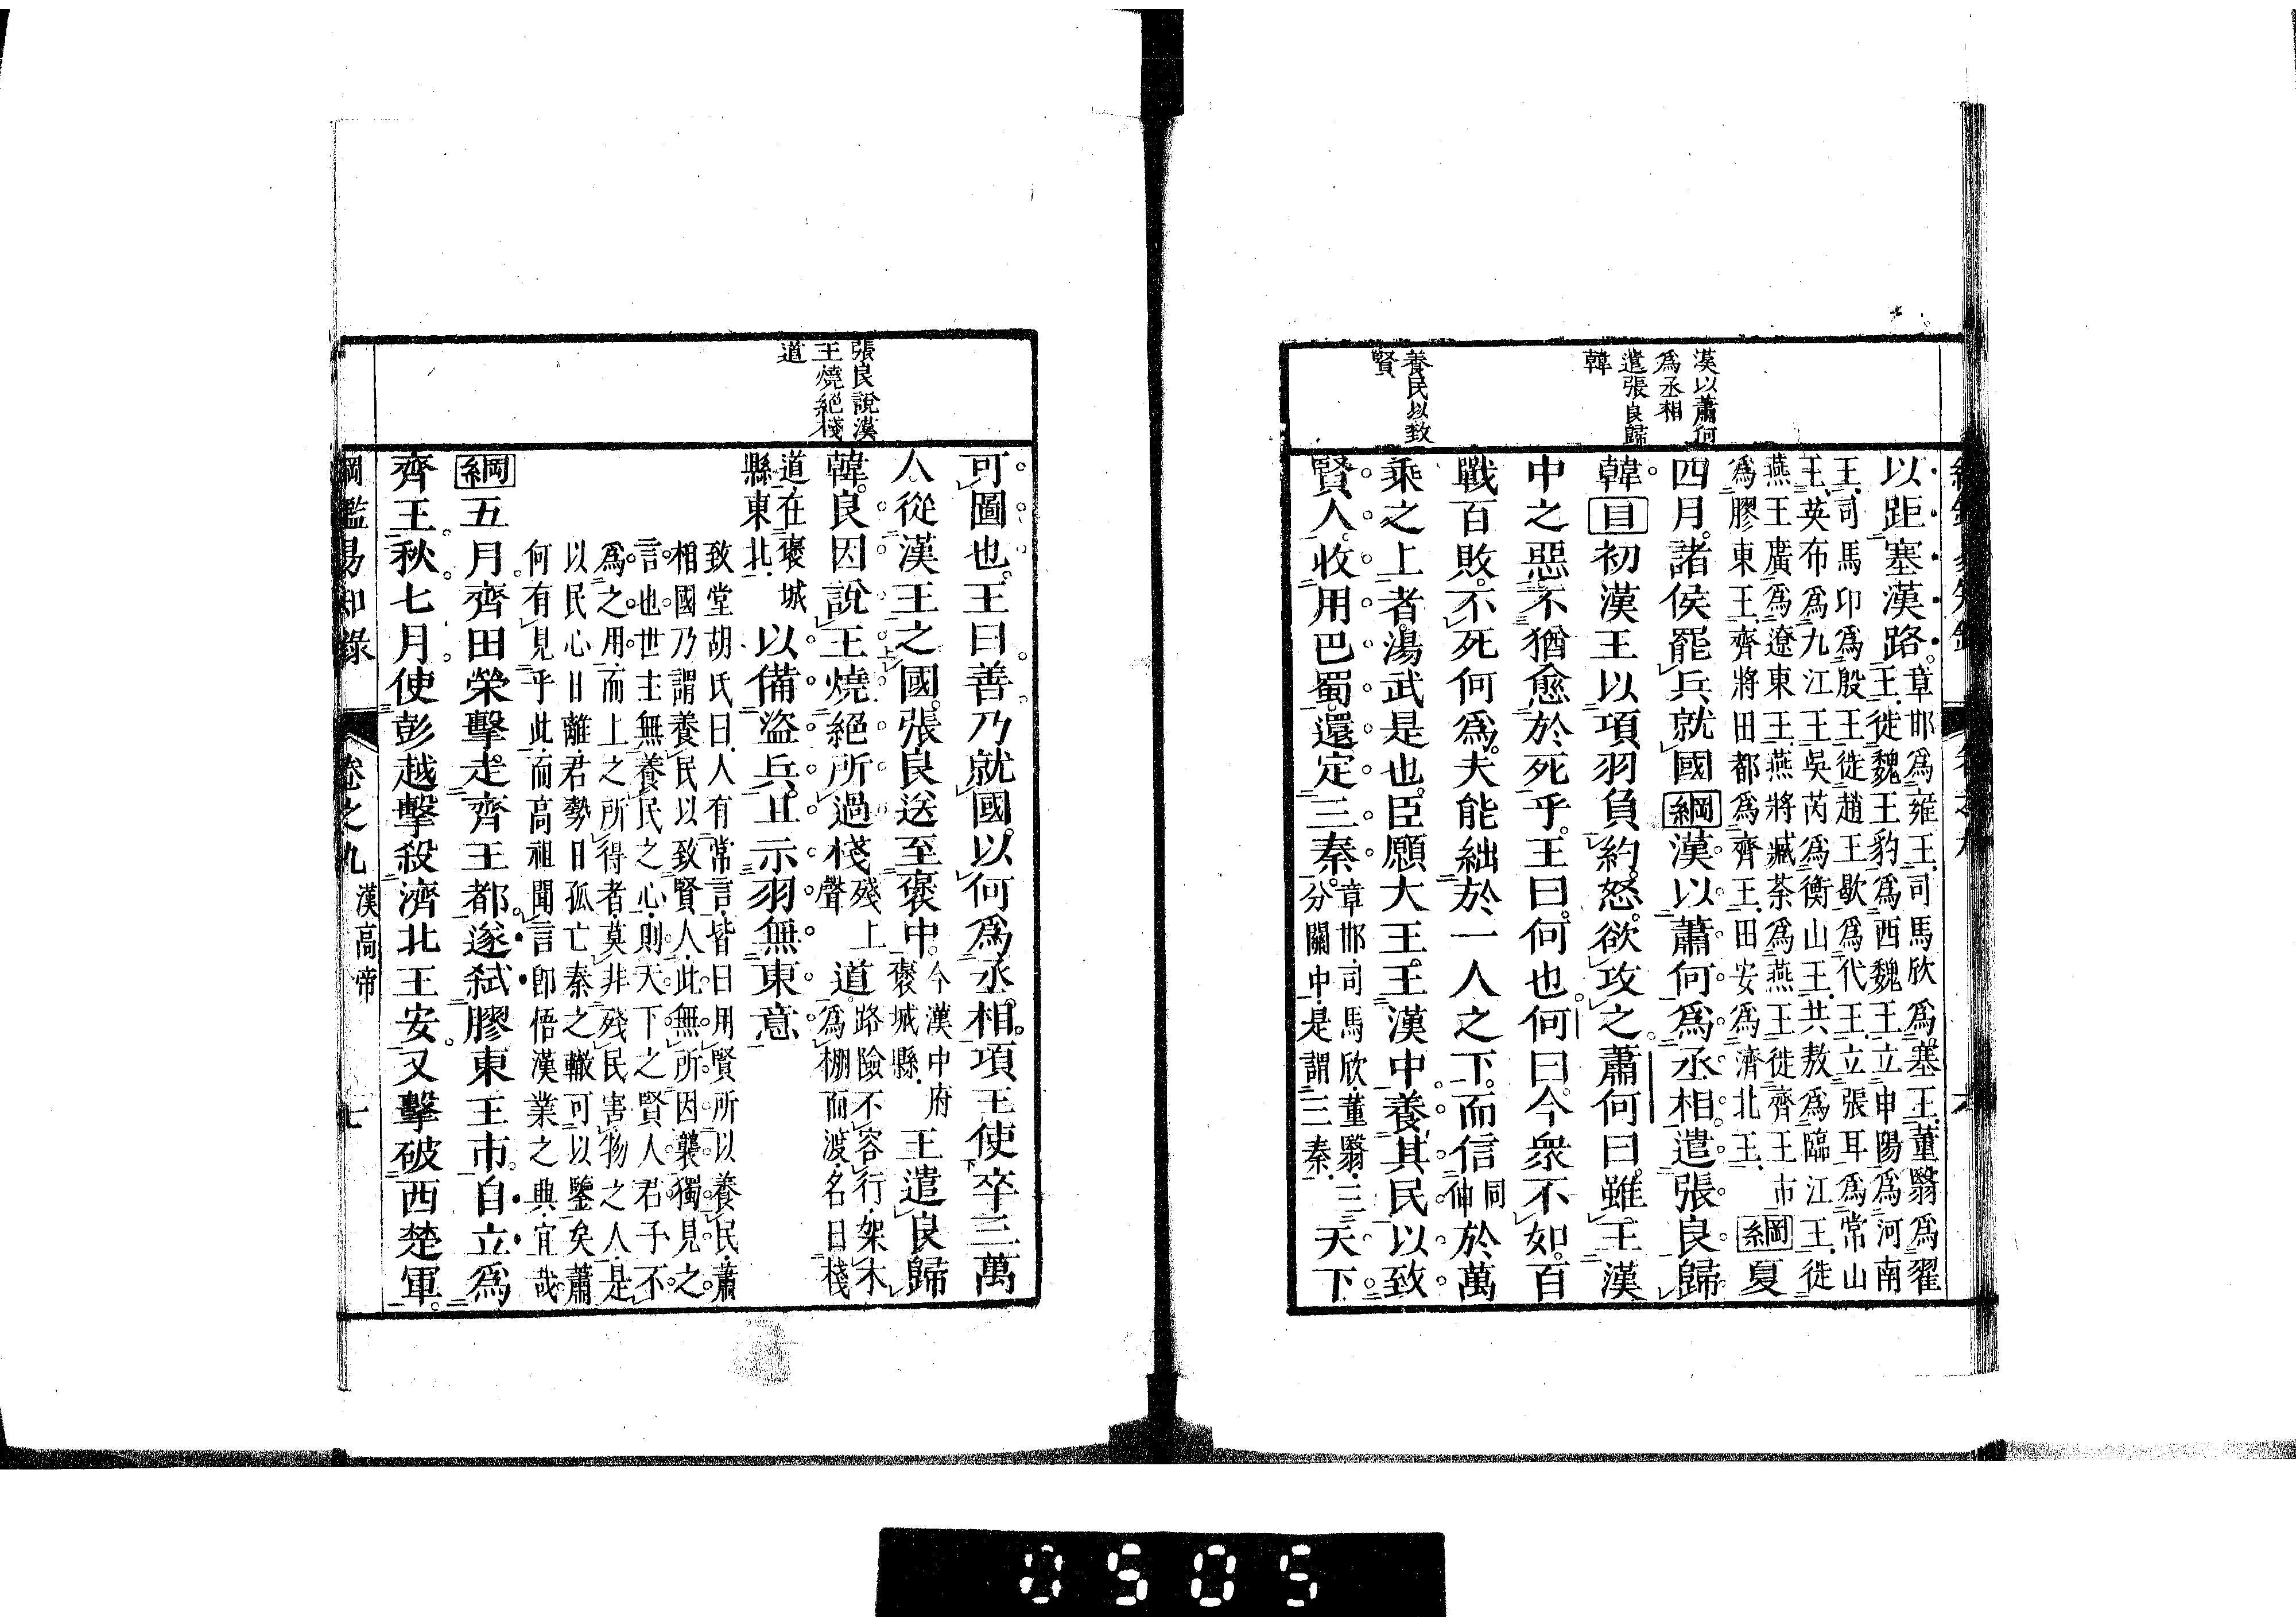 漢以蕭何
爲丞相
遣張良歸
韓
養民以致
賢
以距塞漢路章邯爲雍王司馬欣爲塞王董翳爲翟
王徙魏王豹爲西魏王立申陽爲河南
王司馬卬爲殷王徙趙王歇爲代王立張耳爲常山
王英布爲九江王吳芮爲衡山王共敖爲臨江王徙
燕王廣爲遼東王燕將臧荼爲燕王徙齊王市
爲膠東王齊將田都爲齊王田安爲濟北王綱夏
四月諸侯罷兵就國綱漢以蕭何爲丞相遣張良歸
韓目初漢王以項羽負約怒欲攻之蕭何曰雖王漢
中之惡不猶愈於死乎王曰何也何曰今衆不如百
戰百敗不死何爲夫能絀於一人之下而信同伸於萬
乘之上者湯武是也臣願大王王漢中養其民以致
賢人收用巴蜀還定三秦章邯司馬欣董翳三
分關中是謂三秦天下
張良說漢
王燒絕棧
道
可圖也王曰善乃就國以何爲丞相項王使卒三萬
人從漢王之國張良送至褒中今漢中府
褒城縣王遣良歸
韓良因說王燒絕所過棧殘上
聲道路險不容行架木
爲棚而渡名曰棧
道在褒城
縣東北以備盜兵且示羽無東意
致堂胡氏曰人有常言皆曰用賢所以養民蕭
相國乃謂養民以致賢人此無所因襲獨見之
言也世主無養民之心則天下之賢人君子不
爲之用而上之所得者莫非殘民害物之人是
以民心日離君勢日孤亡秦之轍可以鑒矣蕭
何有見乎此而高祖聞言卽悟漢業之興宜哉
綱五月齊田榮擊走齊王都遂弑膠東王市自立爲
齊王秋七月使彭越擊殺濟北王安又擊破西楚軍
綱鑑易知錄 卷之九 漢高帝 七
0505